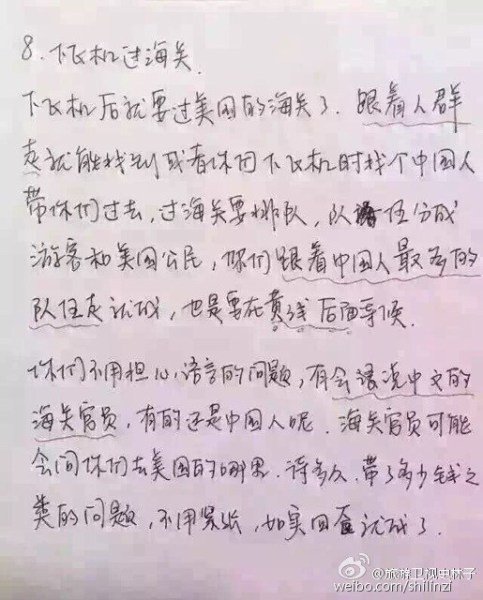 8. 下飞机过海关.
下飞机后就要过美国的海关了. 跟着人群
走就能找到或者你们下飞机时找个中国人
带你们过去, 过海关要排队, 队伍分成
游客和美国公民, 你们跟着中国人最多的
队伍走就成, 也是要在黄线后面等候.
你们不用担心语言的问题, 有会说中文的
海关官员, 有的还是中国人呢. 海关官员可能
会问你们去美国的哪里. 待多久. 带了多少钱之
类的问题, 不用紧张, 如实回答就成了.
@旅游卫视史林子
weibo.com/shilinzi